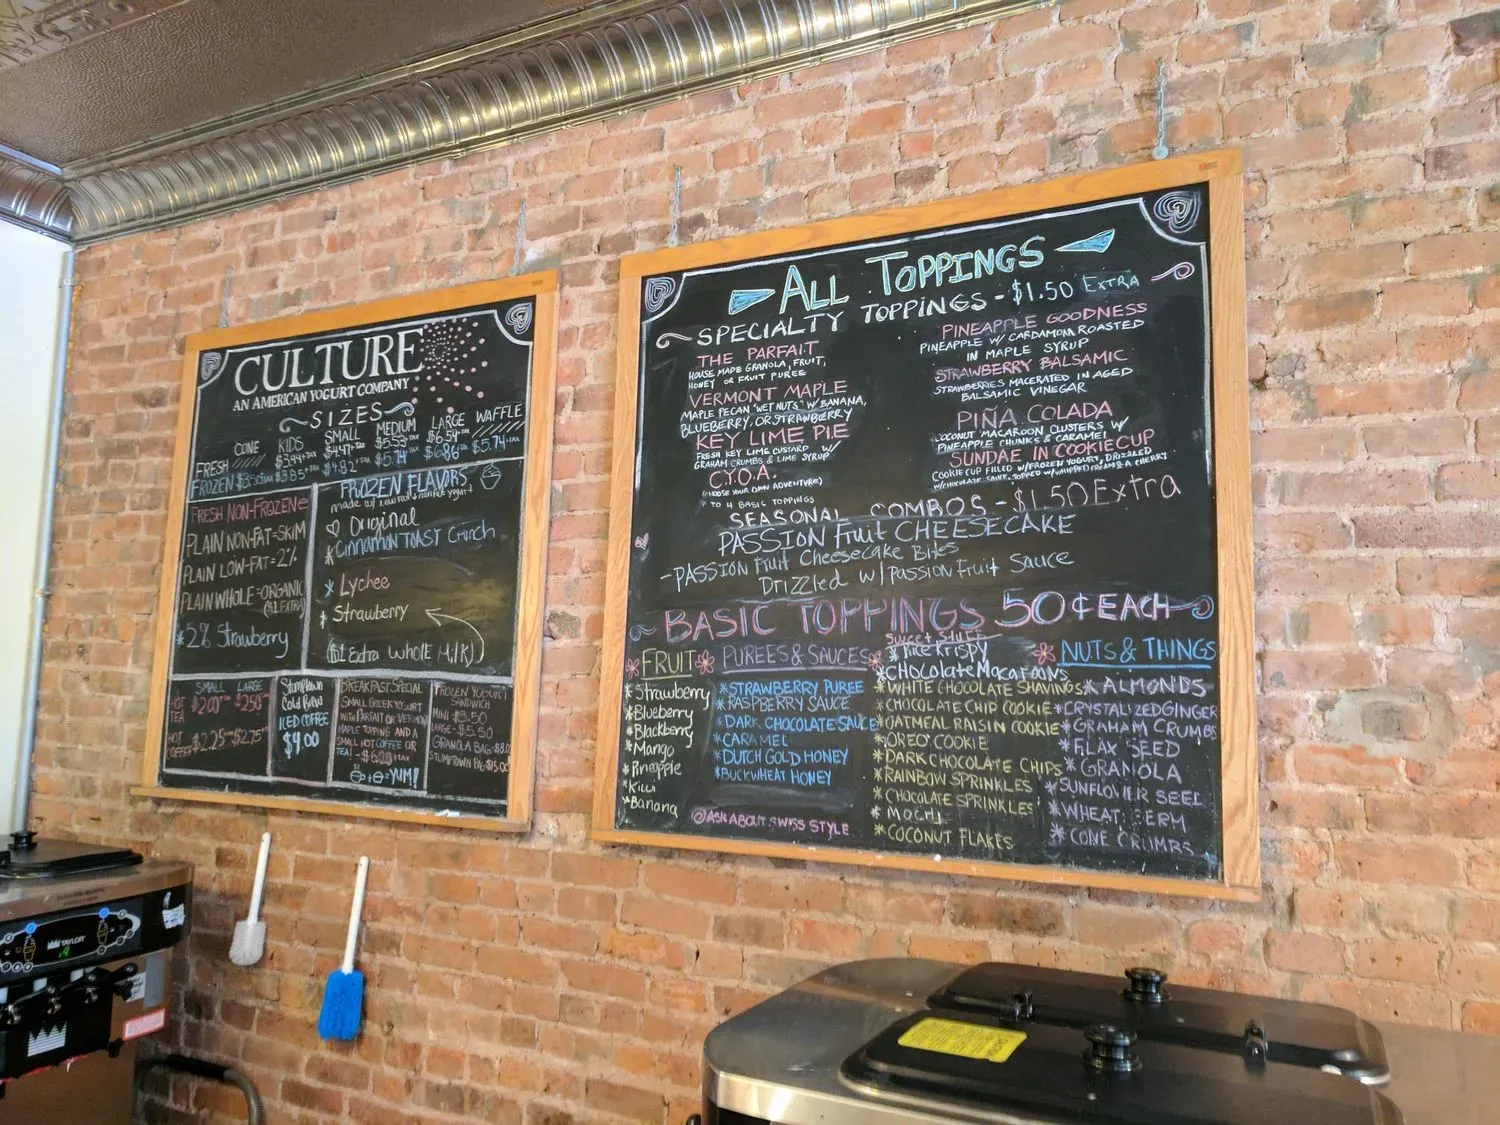 CULTURE
AN AMERICAN YOGURT COMPANY
SIZES
CONE KIDS SMALL MEDIUM LARGE WAFFLE
FRESH $3.44+TAX $4.47+TAX $5.53+TAX $6.54+TAX
FROZEN $3.85+TAX $4.82+TAX $5.74+TAX $6.86+TAX $5.74+TAX
FRESH NON-FROZEN
PLAIN NON-FAT=SKIM
PLAIN LOW-FAT=2%
PLAIN WHOLE=ORGANIC
($1 EXTRA)
*2% Strawberry
FROZEN FLAVORS
made w/ low fat + nonfat yogurt
Original
*Cinnamon TOAST Crunch
* Lychee
* Strawberry
($1 Extra WHOLE MilK)
SMALL LARGE
HOT TEA $2.00 $2.50
HOT COFFEE $2.25 $2.75
Stumptown
Cold Brew
ICED COFFEE
$4.00
BREAKFAST SPECIAL
SMALL GREEK YOGURT
WITH PARFAIT OR VERMONT
MAPLE TOPPING AND A
SMALL HOT COFFEE OR
TEA! -$6.25
=YUM!
FROZEN YOGURT
SANDWICH
MINI -$3.50
LARGE -$5.50
GRANOLA BAG-$8.00
STUMPTOWN BAG $15.00
ALL TOPPINGS
SPECIALTY TOPPINGS - $1.50 EXTRA
THE PARFAIT
HOUSE MADE GRANOLA, FRUIT,
HONEY OR FRUIT PUREE
VERMONT MAPLE
MAPLE PECAN "WET NUTS" W/ BANANA,
BLUEBERRY, OR STRAWBERRY
KEY LIME PIE
FRESH KEY LIME CUSTARD W/
GRAHAM CRUMBS & LIME SYRUP
C.Y.O.A.
(CHOOSE YOUR OWN ADVENTURE)
TO 4 BASIC TOPPINGS
PINEAPPLE GOODNESS
PINEAPPLE W/ CARDAMOM ROASTED
IN MAPLE SYRUP
STRAWBERRY BALSAMIC
STRAWBERRIES MACERATED IN AGED
BALSAMIC VINEGAR
PIÑA COLADA
COCONUT MACAROON CLUSTERS W/
PINEAPPLE CHUNKS & CARAMEL
SUNDAE IN COOKIECUP
COOKIE CUP FILLED W/FROZEN YOGURT, DRIZZLED
W/CHOCOLATE SAUCE, TOPPED W/WHIPPED CREAM & A CHERRY
SEASONAL COMBOS - $1.50 Extra
PASSION Fruit CHEESECAKE
-PASSION Fruit Cheesecake Bites
Drizzled w/ Passion Fruit Sauce
BASIC TOPPINGS 50¢ EACH
FRUIT
*Strawberry
*Blueberry
*Blackberry
*Mango
*Pineapple
*Kiwi
*Banana
PUREES & SAUCES
*STRAWBERRY PUREE
*RASPBERRY SAUCE
*DARK CHOCOLATE SAUCE
*CARAMEL
*DUTCH GOLD HONEY
*BUCKWHEAT HONEY
@ASK ABOUT SWISS STYLE
Sweet Stuff
*Rice Krispy
*CHOCOLATE MACAROONS
*WHITE CHOCOLATE SHAVINGS
*CHOCOLATE CHIP COOKIE
*OATMEAL RAISIN COOKIE
*OREO COOKIE
*DARK CHOCOLATE CHIPS
*RAINBOW SPRINKLES
*CHOCOLATE SPRINKLES
*MOCHI
*COCONUT FLAKES
NUTS & THINGS
*ALMONDS
*CRYSTALLIZED GINGER
*GRAHAM CRUMBS
*FLAX SEED
*GRANOLA
*SUNFLOWER SEED
*WHEAT GERM
*CONE CRUMBS
TAYLOR